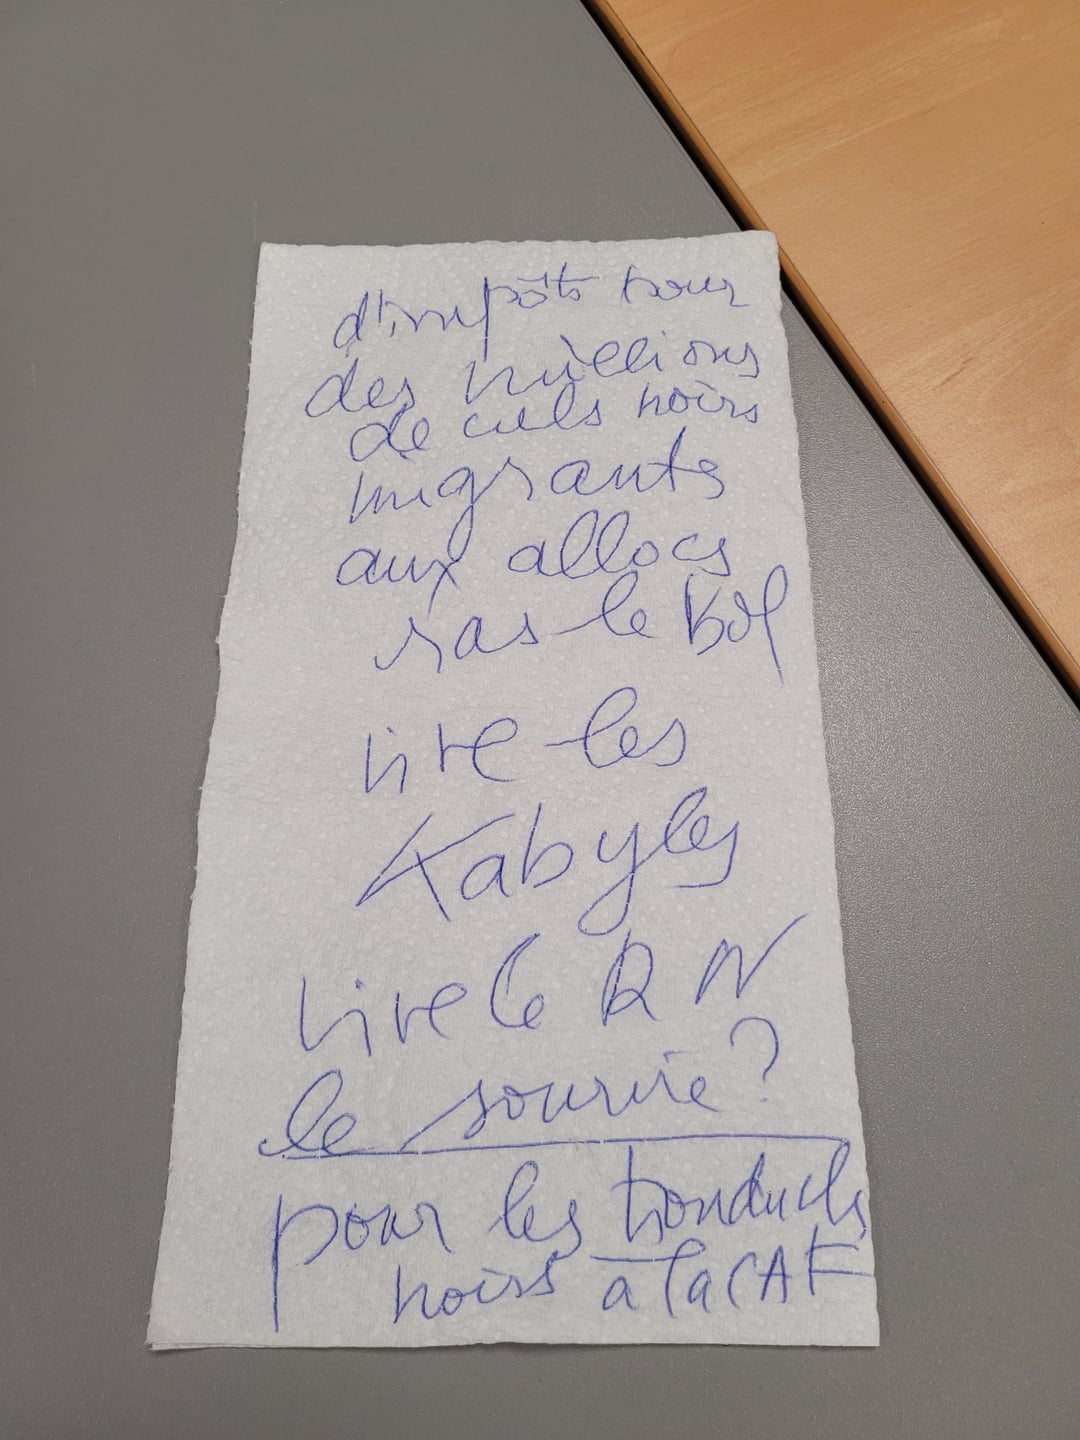 d'impôts pour
des millions
de culs noirs
migrants
aux allocs
ras le bol
vive les
Kabyles
Vive le RN
le sourire ?
pour les trouducls
noirs à la CAF